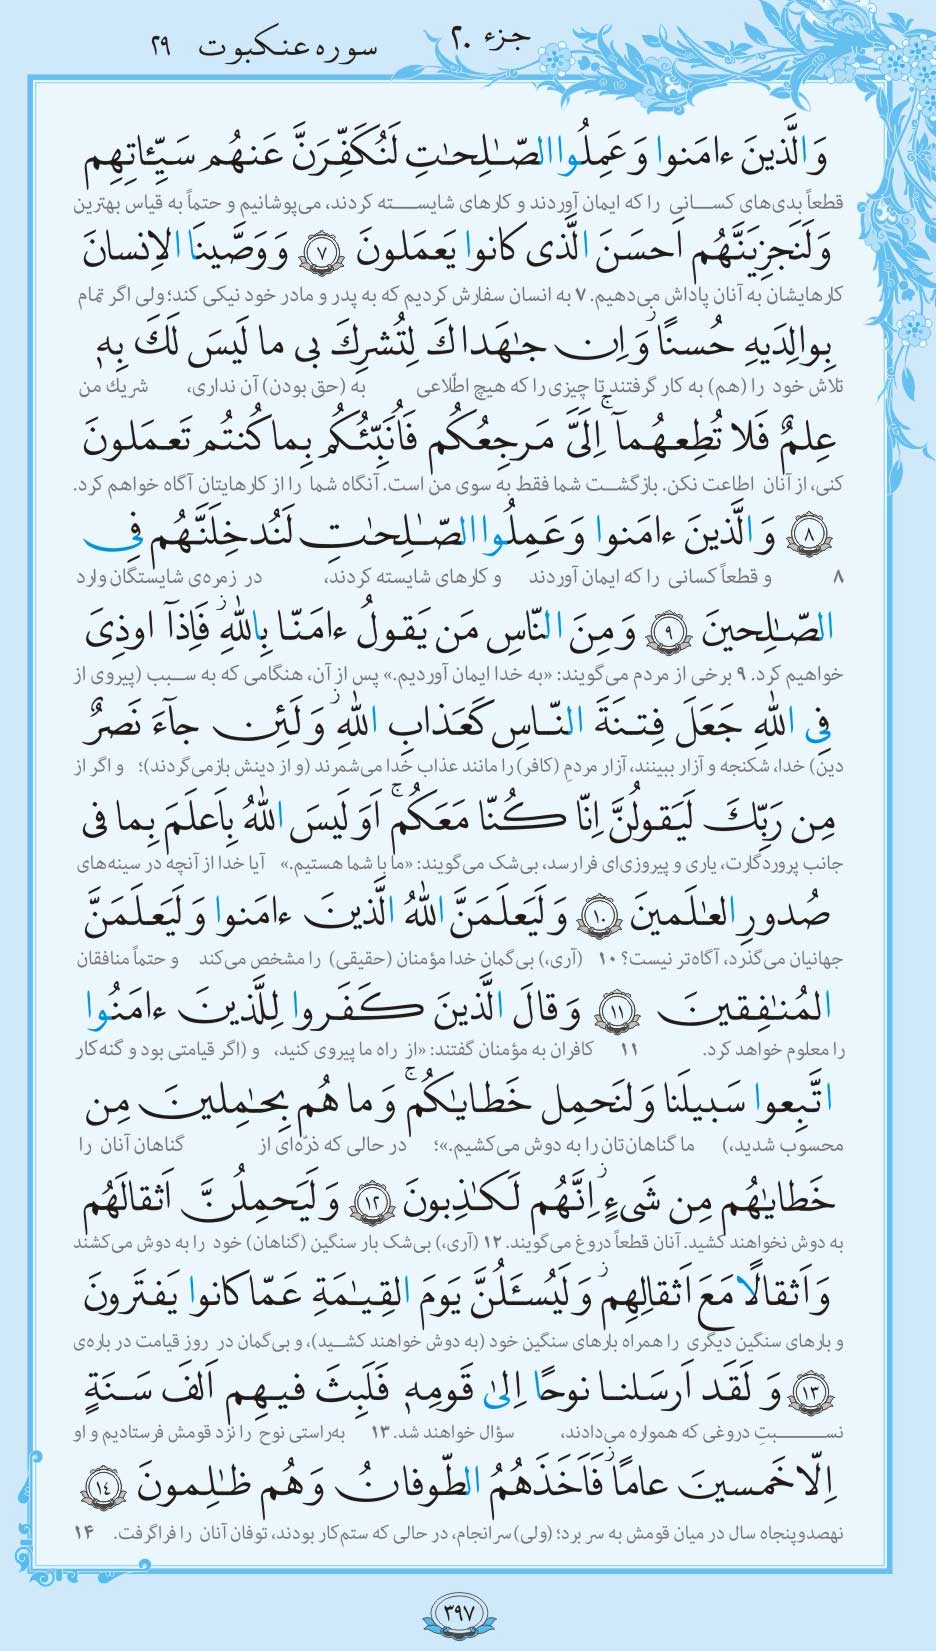 جزء ۲۰
سوره عنکبوت ۲۹
وَالَّذينَ ءامَنوا وَعَمِلُوا الصّٰلِحٰتِ لَنُكَفِّرَنَّ عَنهُم سَيِّـٔاتِهِم
قطعاً بدی‌های کسانی را که ایمان آوردند و کارهای شایسته کردند، می‌پوشانیم و حتماً به قیاس بهترین
وَلَنَجزِيَنَّهُم اَحسَنَ الَّذى كانوا يَعمَلونَ ﴿۷﴾ وَوَصَّينَا الاِنسانَ
کارهایشان به آنان پاداش می‌دهیم. ۷ به انسان سفارش کردیم که به پدر و مادر خود نیکی کند؛ ولی اگر تمام
بِوالِدَيهِ حُسنًاۖ وَاِن جٰهَداكَ لِتُشرِكَ بى ما لَيسَ لَكَ بِهٖ
تلاش خود را (هم) به کار گرفتند تا چیزی را که هیچ اطّلاعی به (حق بودن) آن نداری، شریك من
عِلمٌ فَلا تُطِعهُمآۚ اِلَىَّ مَرجِعُكُم فَاُنَبِّئُكُم بِما كُنتُم تَعمَلونَ
کنی، از آنان اطاعت نکن. بازگشت شما فقط به سوی من است. آنگاه شما را از کارهایتان آگاه خواهم کرد.
﴿۸﴾ وَالَّذينَ ءامَنوا وَعَمِلُوا الصّٰلِحٰتِ لَنُدخِلَنَّهُم فِى
۸ و قطعاً کسانی را که ایمان آوردند و کارهای شایسته کردند، در زمره‌ی شایستگان وارد
الصّٰلِحينَ ﴿۹﴾ وَمِنَ النّاسِ مَن يَقولُ ءامَنّا بِاللّٰهِۖ فَاِذآ اوذِىَ
خواهیم کرد. ۹ برخی از مردم می‌گویند: «به خدا ایمان آوردیم.» پس از آن، هنگامی که به سبب (پیروی از
فِى اللّٰهِ جَعَلَ فِتنَةَ النّاسِ كَعَذابِ اللّٰهِۖ وَلَئِن جآءَ نَصرٌ
دین) خدا، شکنجه و آزار ببینند، آزار مردمِ (کافر) را مانند عذاب خدا می‌شمرند (و از دینش بازمی‌گردند)؛ و اگر از
مِن رَبِّكَ لَيَقولُنَّ اِنّا كُنّا مَعَكُمۚ اَوَلَيسَ اللّٰهُ بِاَعلَمَ بِما فى
جانب پروردگارت، یاری و پیروزی‌ای فرا رسد، بی‌شک می‌گویند: «ما با شما هستیم.» آیا خدا از آنچه در سینه‌های
صُدورِ العٰلَمينَ ﴿۱۰﴾ وَلَيَعلَمَنَّ اللّٰهُ الَّذينَ ءامَنوا وَلَيَعلَمَنَّ
جهانیان می‌گذرد، آگاه‌تر نیست؟ ۱۰ (آری،) بی‌گمان خدا مؤمنان (حقیقی) را مشخص می‌کند و حتماً منافقان
المُنٰفِقينَ ﴿۱۱﴾ وَقالَ الَّذينَ كَفَروا لِلَّذينَ ءامَنُوا
را معلوم خواهد کرد. ۱۱ کافران به مؤمنان گفتند: «از راه ما پیروی کنید، و (اگر قیامتی بود و گنه‌کار
اتَّبِعوا سَبيلَنا وَلنَحمِل خَطايٰكُمۚ وَما هُم بِحٰمِلينَ مِن
محسوب شدید،) ما گناهان‌تان را به دوش می‌کشیم.»؛ در حالی که ذرّه‌ای از گناهان آنان را
خَطايٰهُم مِن شَىءٍۖ اِنَّهُم لَكٰذِبونَ ﴿۱۲﴾ وَلَيَحمِلُنَّ اَثقالَهُم
به دوش نخواهند کشید. آنان قطعاً دروغ می‌گویند. ۱۲ (آری،) بی‌شک بار سنگین (گناهان) خود را به دوش می‌کشند
وَاَثقالًا مَعَ اَثقالِهِمۖ وَلَيُسـَٔلُنَّ يَومَ القِيٰمَةِ عَمّا كانوا يَفتَرونَ
و بارهای سنگین دیگری را همراه بارهای سنگین خود (به دوش خواهند کشید)، و بی‌گمان در روز قیامت در باره‌ی
﴿۱۳﴾ وَلَقَد اَرسَلنا نوحًا اِلىٰ قَومِهٖ فَلَبِثَ فيهِم اَلفَ سَنَةٍ
نسبتِ دروغی که همواره می‌دادند، سؤال خواهند شد. ۱۳ به‌راستی نوح را نزد قومش فرستادیم و او
اِلّا خَمسينَ عامًاۖ فَاَخَذَهُمُ الطّوفانُ وَهُم ظٰلِمونَ ﴿۱۴﴾
نهصدوپنجاه سال در میان قومش به سر برد؛ (ولی) سرانجام، در حالی که ستم‌کار بودند، توفان آنان را فراگرفت. ۱۴
۳۹۷